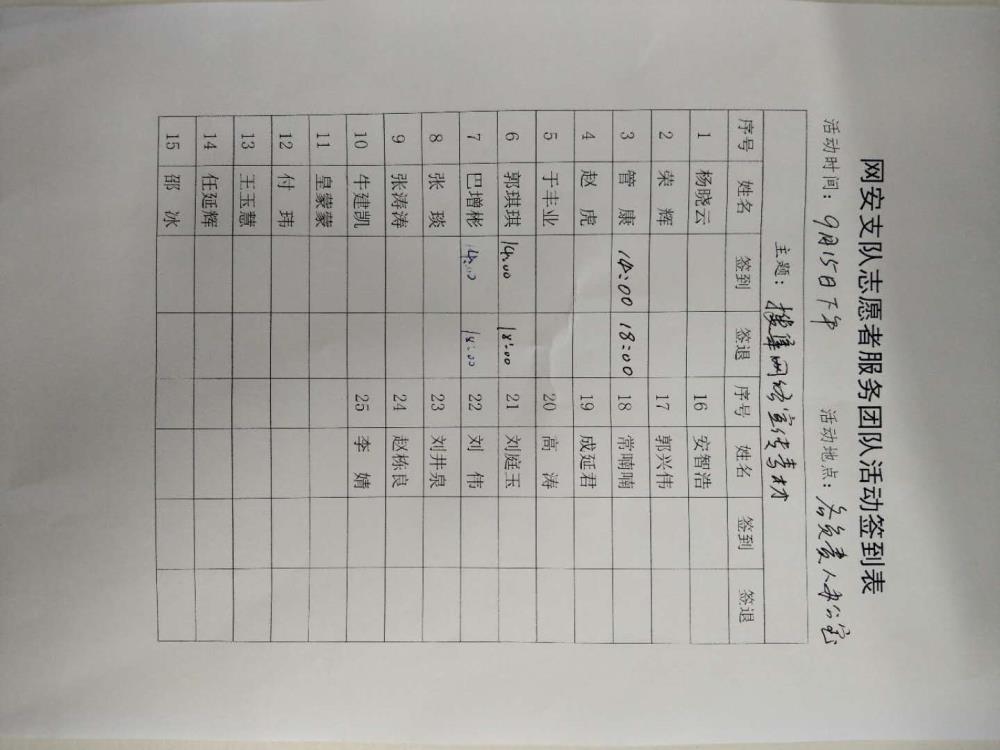 网安支队志愿者服务团队活动签到表
活动时间：9月15日下午 活动地点：各负责人办公室
主题：搜集网络宣传素材
序号 姓名 签到 签退 序号 姓名 签到 签退
1 杨晓云 16 安智浩
2 荣辉 17 郭兴伟
3 管康 14:00 18:00 18 常喃喃
4 赵虎 19 成延君
5 于丰业 20 高涛
6 郭琪琪 14:00 18:00 21 刘庭玉
7 巴增彬 14:00 18:00 22 刘伟
8 张琰 23 刘井泉
9 张涛涛 24 赵栋良
10 牛建凯 25 李婧
11 皇蒙蒙
12 付玮
13 王玉慧
14 任延辉
15 邵冰